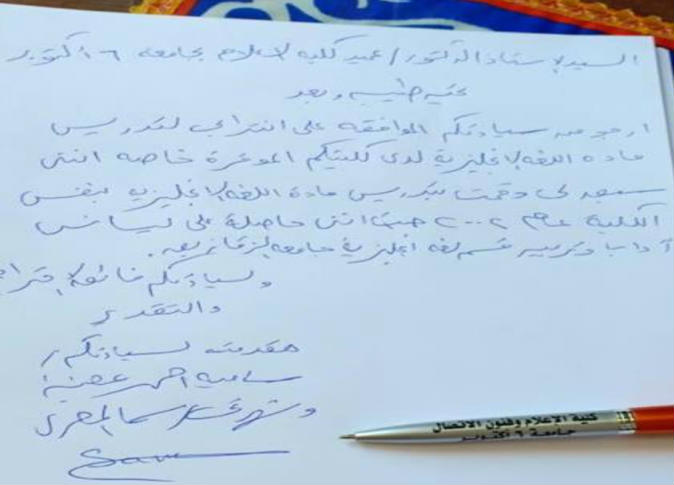 السيد الاستاذ الدكتور / عميد كلية الاعلام بجامعه ٦ اكتوبر
تحيه طيبه وبعد
ارجو من سيادتكم الموافقه على انتدابى لتدريس
ماده اللغه الانجليزية لدى كليتكم الموقرة خاصه اننى
سبق لى وقمت بتدريس مادة اللغه الانجليزيه بنفس
الكلية عام ٢٠٠٢ حيث اننى حاصلة على ليسانس
آداب وتربيه قسم لغه انجليزية جامعه الزقازيق.
ولسيادتكم فائق الاحترام
والتقدير
مقدمته لسيادتكم /
ساميه احمر
وشهرتى سما المصرى
Sama
كلية الإعلام وفنون الاتصال
جامعة ٦ أكتوبر